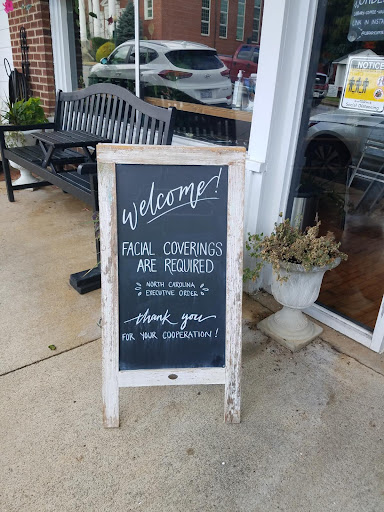 welcome!
FACIAL COVERINGS
ARE REQUIRED
NORTH CAROLINA
EXECUTIVE ORDER
thank you
FOR YOUR COOPERATION!
NOTICE